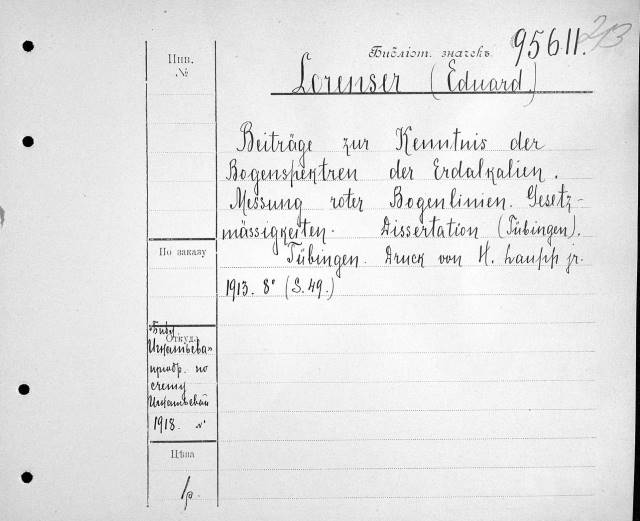 Библіот. значекъ 956.11. 213
Инв.
№
Lorenser (Eduard.)
Beiträge zur Kenntnis der
Bogenspektren der Erdalkalien.
Messung roter Bogenlinien. Gesetz-
mässigkeiten. Dissertation (Tübingen).
Tübingen. Druck von H. Laupp jr.
1913. 8° (S. 49.)
По заказу
Откуда
Игнатьева»
приобр. по
счету
Игнатьевой
1918.
Цѣна
1р.